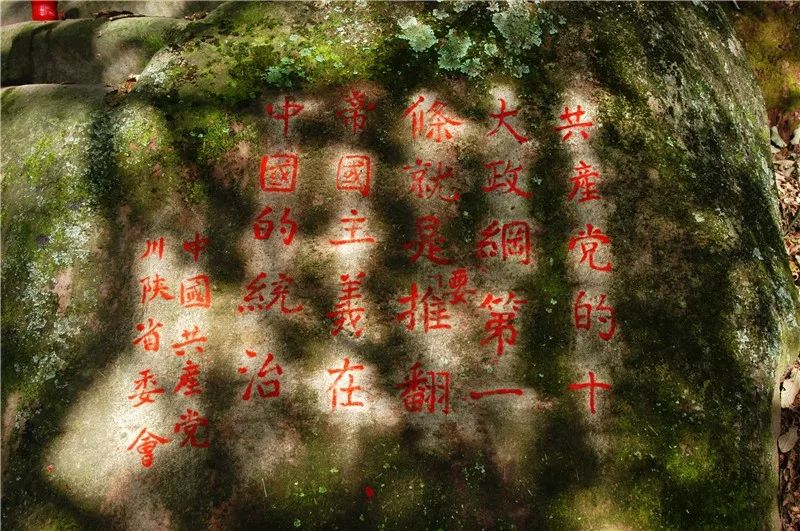 共產党的十
大政綱第一
條就是要推翻
帝國主義在
中國的統治
中國共產党
川陕省委會